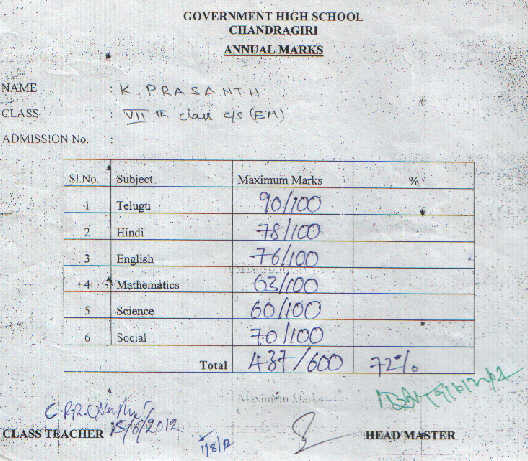 GOVERNMENT HIGH SCHOOL
CHANDRAGIRI
ANNUAL MARKS
NAME : K. PRASANTH
CLASS : VII th class c/s (EM)
ADMISSION No. :
Sl.No. Subject Maximum Marks %
1 Telugu 90/100
2 Hindi 78/100
3 English 76/100
4 Mathematics 63/100
5 Science 60/100
6 Social 70/100
Total 437/600 72%
Maximum Marks
CLASS TEACHER 18/6/2012 HEAD MASTER